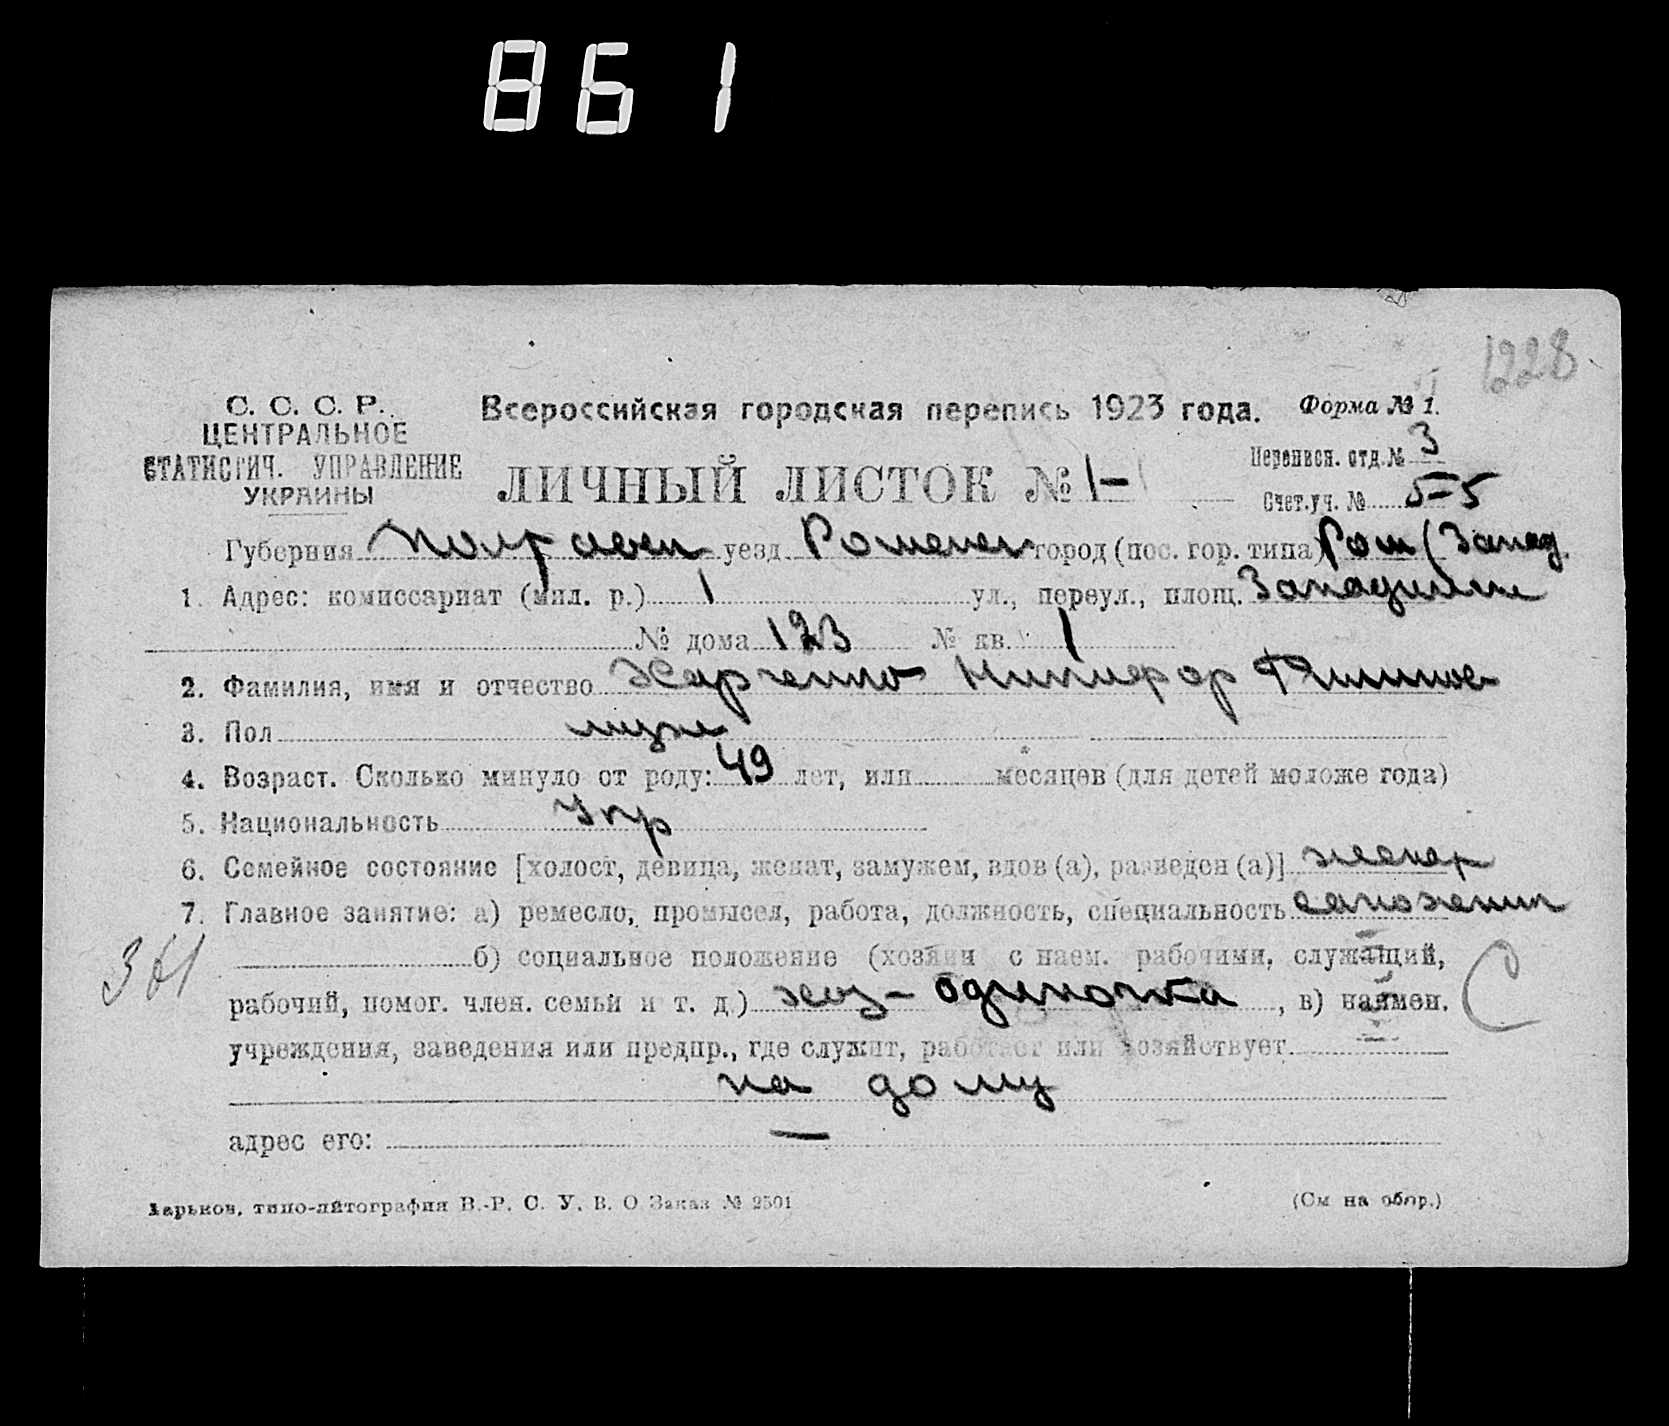 861
1228
С. С. С. Р.
ЦЕНТРАЛЬНОЕ
СТАТИСТИЧ. УПРАВЛЕНИЕ
УКРАИНЫ
Всероссийская городская перепись 1923 года.
Форма № 1.
ЛИЧНЫЙ ЛИСТОК № 1-
Переписн. отд. № 3
Счет. уч. № 5-5
Губерния Полтавск уезд Роменск город (пос. гор. типа) Ром (Запад.
1. Адрес: комиссариат (мил. р.) 1 ул., переул., площ.
№ дома 123 № кв. 1
2. Фамилия, имя и отчество Харченко Никифор
3. Пол муж
4. Возраст. Сколько минуло от роду: 49 лет, или месяцев (для детей моложе года)
5. Национальность Укр
6. Семейное состояние [холост, девица, женат, замужем, вдов (а), разведен (а)] женат
7. Главное занятие: а) ремесло, промысел, работа, должность, специальность сапожник
361
б) социальное положение (хозяин с наем. рабочими, служащий,
рабочий, помог. член. семьи и т. д.) хоз- одиночка, в) наимен. С
учреждения, заведения или предпр., где служит, работает или хозяйствует
на дому
адрес его: —
Харьков, типо-литография В.-Р. С. У. В. О Заказ № 2501
(См на обор.)